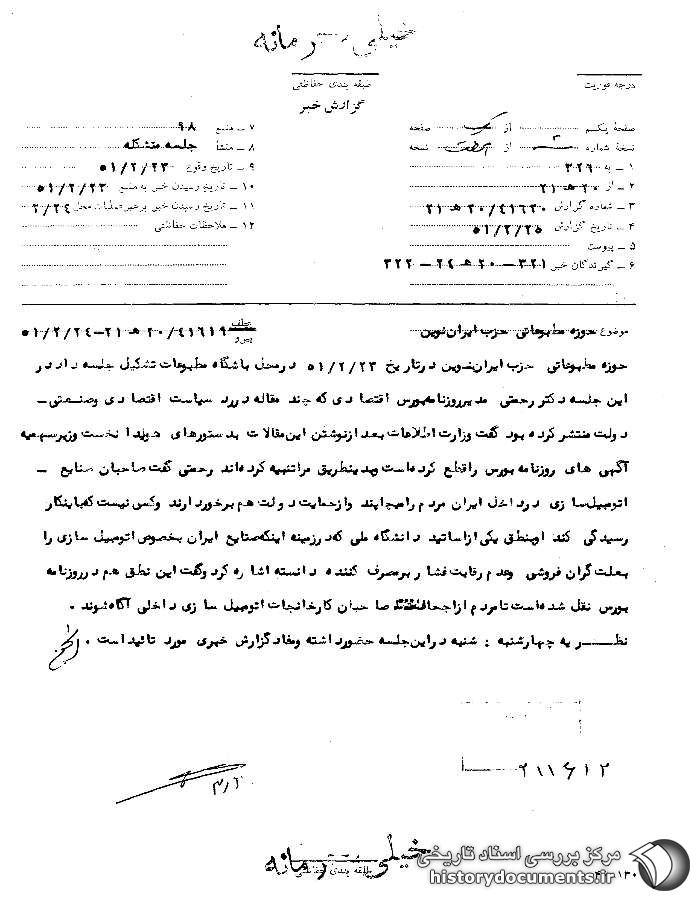 خیلی محرمانه
درجه فوریت
طبقه بندی حفاظتی
گزارش خبر
صفحهٔ یکم از یک صفحه
نسخهٔ شماره ۳ از نسخه
۱ – به ۳۲۹
۲ – از ۲۰ ﻫ ۲۱
۳ – شماره گزارش ۲۰/۴۱۶۲۰ ﻫ ۲۱
۴ – تاریخ گزارش ۵۱/۲/۲۵
۵ – پیوست
۶ – گیرندگان خبر ۳۲۱ – ۲۰ ﻫ ۲۴ – ۳۲۲
۷ – منبع ۹۸
۸ – منشأ جلسه متشکله
۹ – تاریخ وقوع ۵۱/۲/۲۳
۱۰ – تاریخ رسیدن خبر به منبع ۵۱/۲/۲۳
۱۱ – تاریخ رسیدن خبر برهبر عملیات محل ۲/۲۴
۱۲ – ملاحظات حفاظتی
موضوع حوزه مطبوعاتی حزب ایران نوین عطف پیرو ۲۰/۴۱۶۱۹ ﻫ ۲۱–۵۱/۲/۲۴
حوزه مطبوعاتی حزب ایران نوین در تاریخ ۵۱/۲/۲۳ در محل باشگاه مطبوعات تشکیل جلسه داد در
این جلسه دکتر رحمتی مدیر روزنامه بورس اقتصادی که چند مقاله در رد سیاست اقتصادی وصنعتی –
دولت منتشر کرده بود گفت وزارت اطلاعات بعد از نوشتن این مقالات بدستور هویدا نخست وزیر سهمیه
آگهی های روزنامه بورس را قطع کرده است وبدینطریق مرا تنبیه کرده اند رحمتی گفت صاحبان صنایع –
اتومبیل سازی در داخل ایران مردم را میچاپند واز حمایت دولت هم برخوردارند وکسی نیست که باینکار
رسیدگی کند اوبنطق یکی از اساتید دانشگاه ملی که در زمینه اینکه صنایع ایران بخصوص اتومبیل سازی را
بعلت گران فروشی وعدم رقابت فشار بر مصرف کننده دانسته اشاره کرد وگفت این نطق هم در روزنامه
بورس نقل شده است تا مردم از اجحاف صاحبان کارخانجات اتومبیل سازی داخلی آگاه شوند .
نظریه چهارشنبه : شنبه در این جلسه حضور داشته ومفاد گزارش خبری مورد تائید است .
۲۱۱۶۱۲
خیلی محرمانه
طبقه بندی حفاظتی
مرکز بررسی اسناد تاریخی
historydocuments.ir